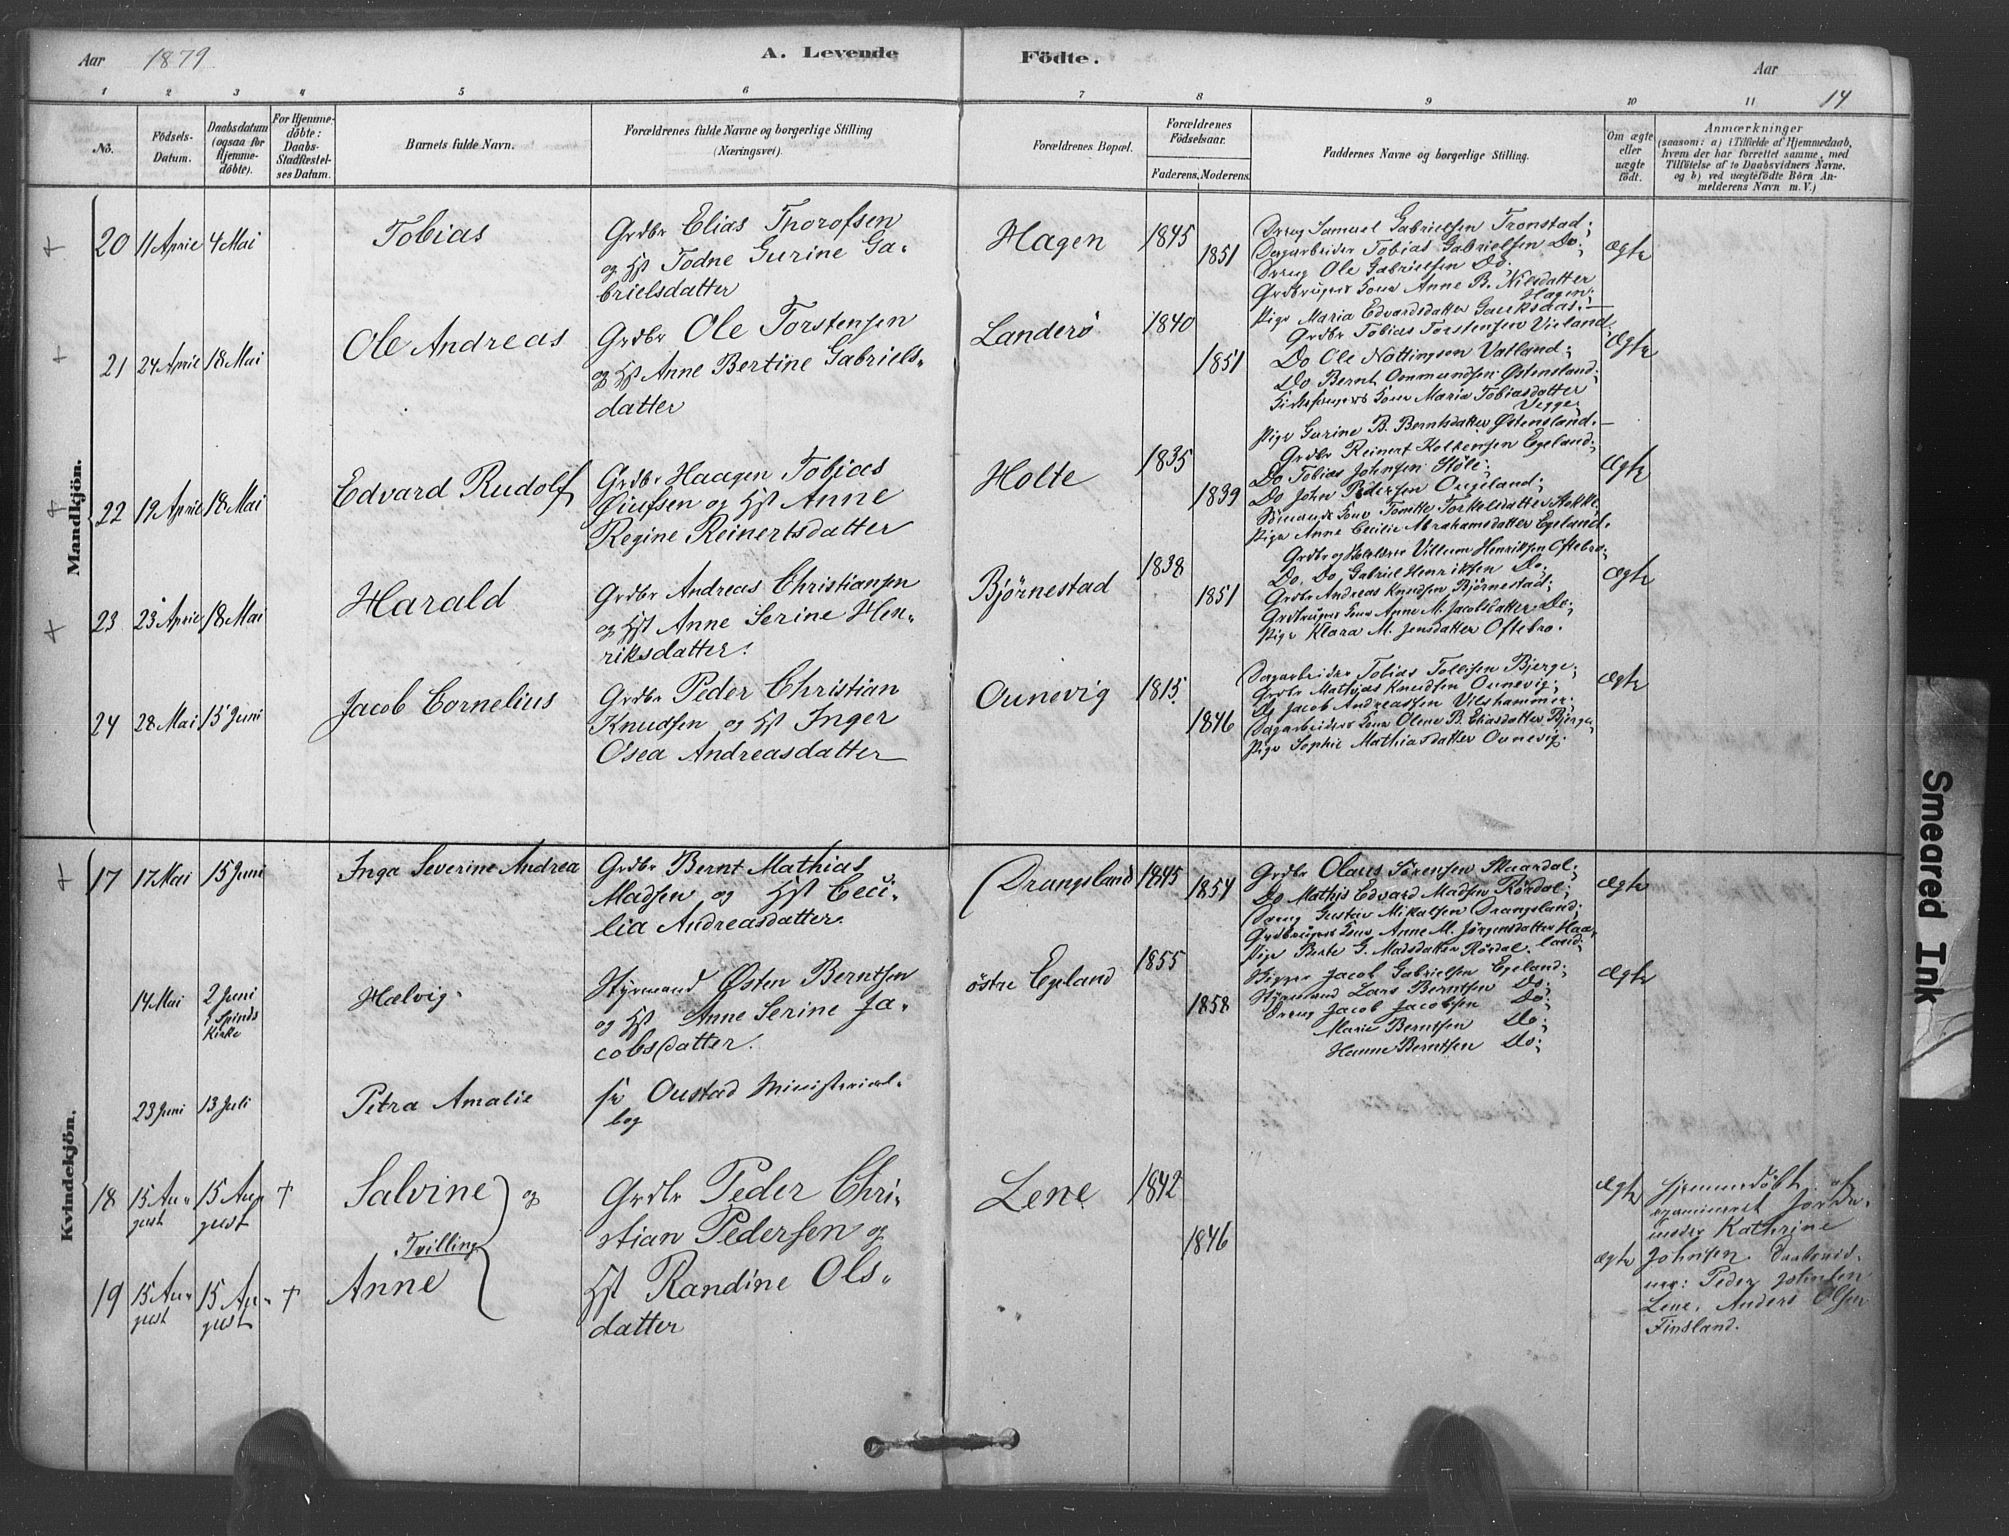 Aar 1879
A. Levende
Födte.
Aar
14
1 2 3 4 5 6 7 8 9 10 11
No.
Födsels-
Datum.
Daabsdatum
(ogsaa for
Hjemme-
döbte).
For Hjemme-
döbte:
Daabs-
Stadfæstel-
ses Datum.
Barnets fulde Navn.
Forældrenes fulde Navne og borgerlige Stilling
(Næringsvei).
Forældrenes Bopæl.
Forældrenes
Födselsaar.
Faderens. Moderens.
Faddernes Navne og borgerlige Stilling.
Om ægte
eller
uægte
födt.
Anmærkninger
(saasom: a) i Tilfælde af Hjemmedaab,
hvem der har forrettet samme, med
Tilföielse af to Daabsvidners Navne,
og b) ved uægtefödte Börn An-
melderens Navn m. V.)
Mandkjön.
20 11 April 4 Mai
Tobias
Grdbr Elias Thorofsen
og Hst Todne Gurine Ga-
brielsdatter
Hagen
1845
1851
Dreng Samuel Gabrielsen Tronstad;
Dagarbeider Tobias Gabrielsen Do;
Dreng Ole Gabrielsen Do;
Grdbrugers Kone Anne B. Nilsdatter
Hagen;
Pige Maria Edvardsdatter Gauksaas.
ægte
21 24 April 18 Mai
Ole Andreas
Grdbr Ole Torstensen
og Hst Anne Bertine Gabriels-
datter
Landerö
1840
1851
Grdbr Tobias Torstensen Virland
Do Ole Nottingson Vatland;
Do Bernt Ommundsen Østensland;
Kone Maria Tobiasdatter
Vegge;
Pige Gurine B. Berntsdatter Østensland.
Ægte
22 19 April 18 Mai
Edvard Rudolf
Grdbr Haagen Tobias
og Hst Anne
Regine Reinertsdatter
Holte
1835
1839
Grdbr Reinert Egeland;
Do Tobias Johnsen Höle;
Do John Pedersen Ougeland;
Kone Tomine Torkelsdatter
Pige Anne Cecilie Abrahamsdatter Egeland.
Ægte
23 23 April 18 Mai
Harald
Grdbr Andreas Christiansen
og Hst Anne Serine Hen-
riksdatter.
Björnestad
1838
1851
Grdbr og Villum Henriksen Oftebro;
Do. Do Gabriel Henriksen Do;
Grdbr Andreas Knudsen Björnestad;
Grdbrugers Kone Anne M. Jacobsdatter Do;
Pige Klara M. Jensdatter Oftebro.
Ægte
24 28 Mai 15 Juni
Jacob Cornelius
Grdbr Peder Christian
Knudsen og Hst Inger
Osea Andreasdatter
Ounevig
1815
1846
Dagarbeider Tobias Tollisen Bjerge;
Grdbr Mathias Knudsen Ounevig;
Do Jacob Andreassen Vilshammer;
Dagarbeiders Kone Olene B. Eliasdatter Bjerge
Pige Sophie Mathiasdatter Ounevig.
ægte
Kvindekjön.
17 17 Mai 15 Juni
Inga Severine Andrea
Grdbr Bernt Mathias
Madsen og Hst Ceci-
lia Andreasdatter
Drangsland
1845
1854
Grdbr Olaus Sørensen Skaardal;
Do Mathis Edvard Madsen Rördal;
Dreng Gustav Mikalsen Drangsland;
Grdbrugers Kone Anne M. Jörgensdatter Haa-
land;
Pige Berte G. Madsdatter Rördal.
Ægte
14 Mai 2 Juni
i Spinds
Kirke
Hælvig
Styrmand Østen Berntsen
og Hst Anne Serine Ja-
cobsdatter.
östre Egeland
1855
1858
Skipper Jacob Gabrielsen Egeland;
Styrmand Lars Berntsen Do;
Dreng Jacob Jacobsen Do;
Marie Berntsen Do;
Hanne Berntsen Do;
Ægte
23 Juni 13 Juli
Petra Amalie
se Oustad Ministerial-
bog
18 15 Au-
gust
15 Aug
gust
†
Salvine og
Tvilling
Grdbr Peder Chri-
stian Pedersen og
Hst Randine Ols-
datter
Lene
1842
1846
ægte
Hjemmedöbt af
examineret Jorde-
moder Kathrine
Johnsen. Daabsvid-
ner: Peder Johnsen
Lene, Anders Olsen
Finsland.
19 15 Au-
gust
15 Au-
gust
†
Anne
ægte
Smeared Ink